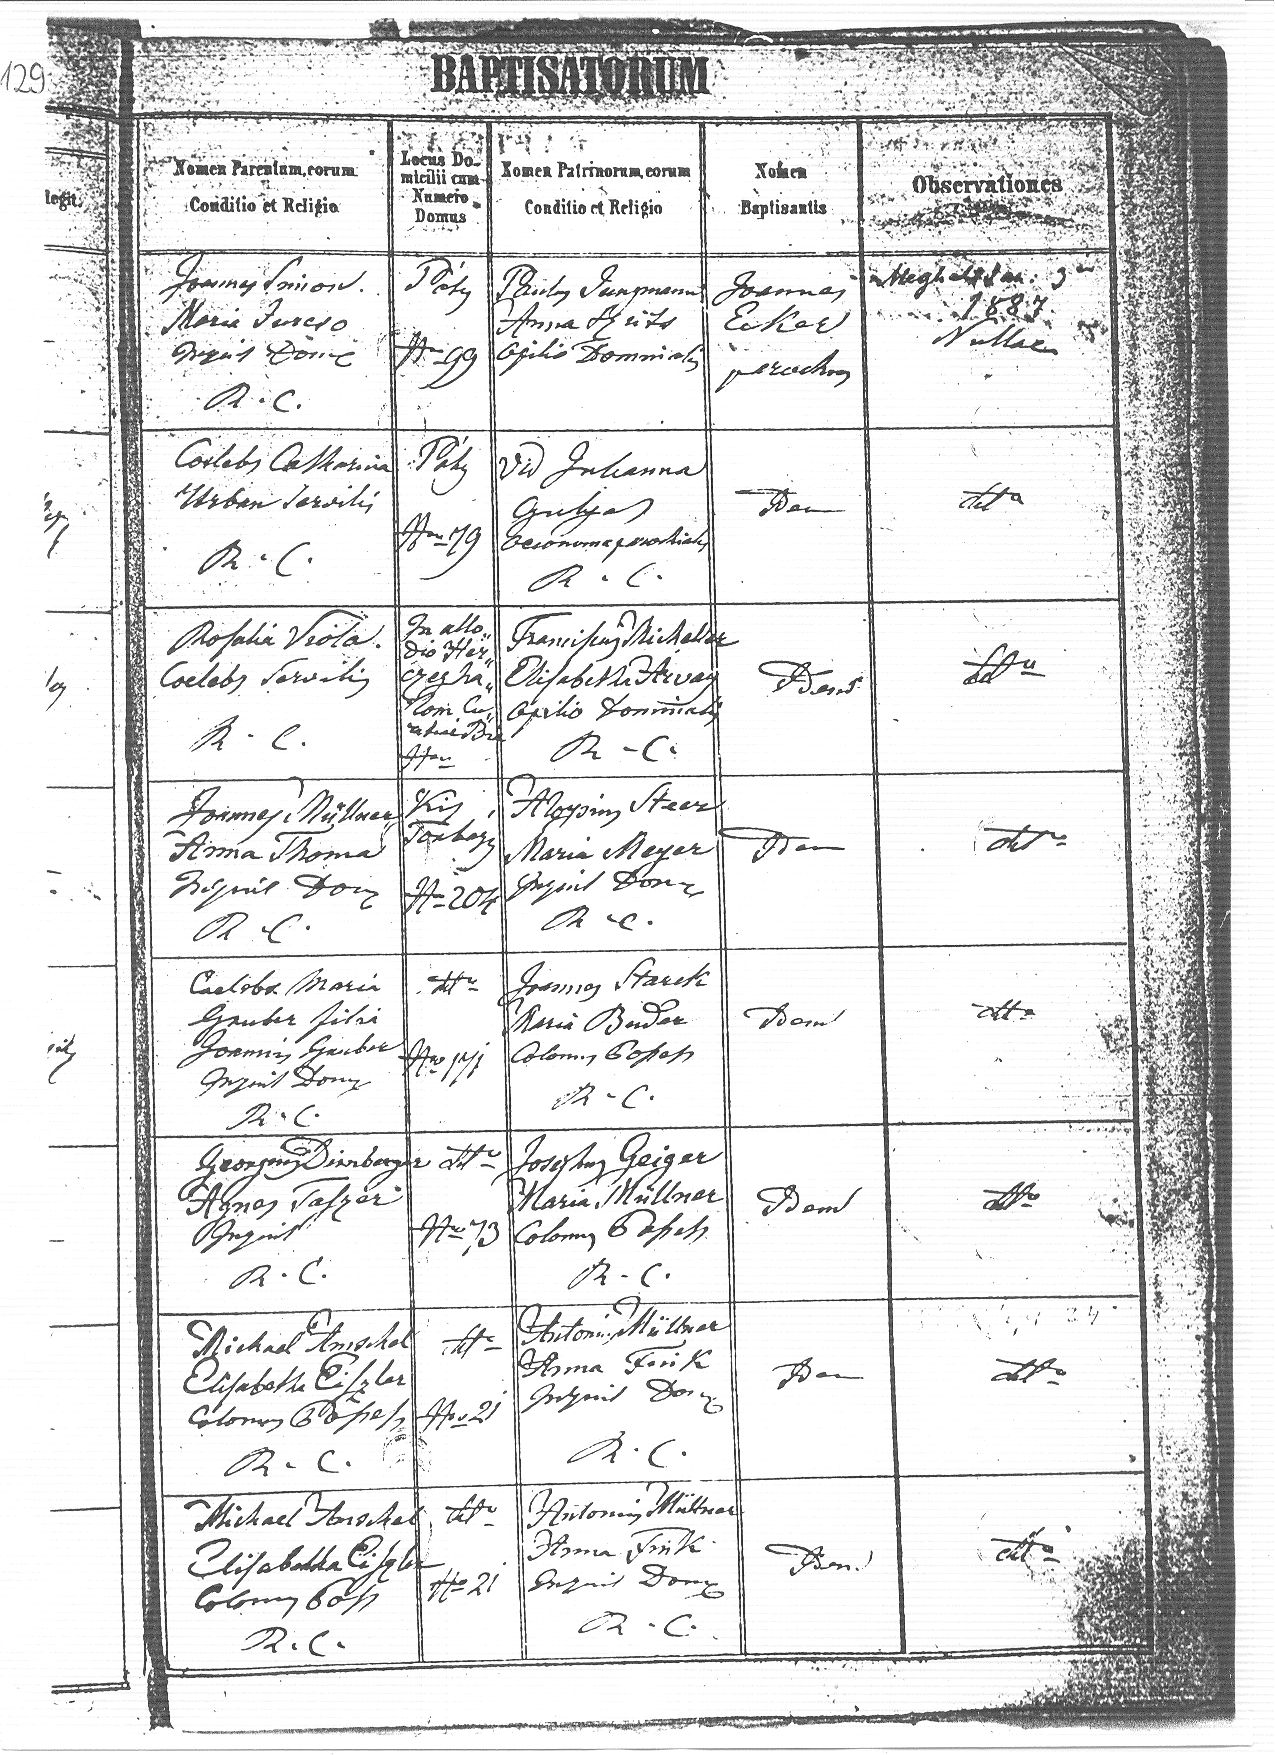 129
BAPTISATORUM
legit.
Nomen Parentum, eorum
Conditio et Religio
Locus Do-
micilii cum
Numero
Domus
Nomen Patrinorum, eorum
Conditio et Religio
Nomen
Baptisantis
Observationes
Joannes Simon.
Maria
Inquil Dom
R. C.
Páty
Nro 99
Paulus Jungmann
Anna
Opilio Dominalis
Joannes
Ecker
parochus
Meghalt Jan. 3
1887
Nullae
Coelebs Catharina
Urban Servilis
R. C.
Páty
Nro 79
Vid Julianna
Gulyas
Oeconoma parochialis
R. C.
Idem
dtto
Rosalia Viola.
Coelebs Servilis
R. C.
In allo„
dio Her„
czegha„
Nro
Franciscus Micheller
Elisabetha Arvay
Opilio Dominalis
R. C.
Idem
dtto
Joannes Müllner
Anna Thoma
Inquil Dom
R. C.
Kis
Torbágy
Nro 204
Aloysius Steer
Maria Mayer
Inquil Dom
R. C.
Idem
dtto
Caelebs Maria
Gruber filia
Joannis Gruber
Inquil Dom
R. C.
dtto
Nro 171
Joannes Starck
Maria Buder
Colonus
R. C.
Idem
dtto
Georgius Dinnberger
Agnes
Inquil
R. C.
dtto
Nro 73
Josephus Geiger
Maria Müllner
Colonus
R. C.
Idem
dtto
Michael Amschel
Elisabetha Eiszler
Colonus
R. C.
dtto
Nro 21
Antonius Müllner
Anna Fink
Inquil Dom
R. C.
Idem
dtto
Michael Amschel
Elisabetha Eiszler
Colonus
R. C.
dtto
Nro 21
Antonius Müllner
Anna Fink
Inquil Dom
R. C.
Idem
dtto